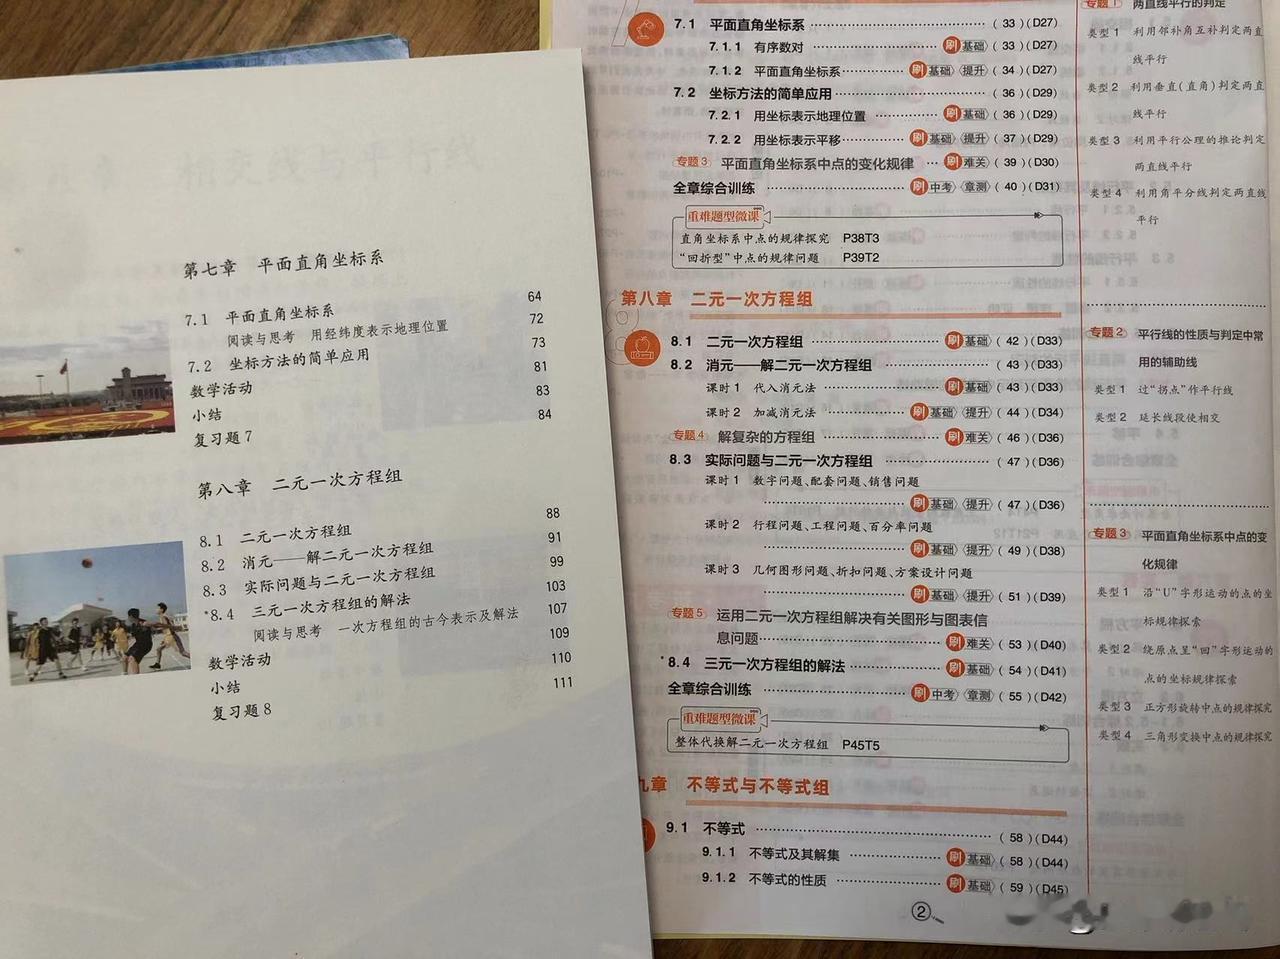 第七章 平面直角坐标系
7.1 平面直角坐标系 64
阅读与思考 用经纬度表示地理位置 72
7.2 坐标方法的简单应用 73
数学活动 81
小结 83
复习题7 84
第八章 二元一次方程组
8.1 二元一次方程组 88
8.2 消元——解二元一次方程组 91
8.3 实际问题与二元一次方程组 99
*8.4 三元一次方程组的解法 103
阅读与思考 一次方程组的古今表示及解法 107
数学活动 109
小结 110
复习题8 111
7.1 平面直角坐标系 (33)(D27)
7.1.1 有序数对 刷 基础 (33)(D27)
7.1.2 平面直角坐标系 刷 基础 提升 (34)(D27)
7.2 坐标方法的简单应用 (36)(D29)
7.2.1 用坐标表示地理位置 刷 基础 (36)(D29)
7.2.2 用坐标表示平移 刷 基础 提升 (37)(D29)
专题3 平面直角坐标系中点的变化规律 刷 难关 (39)(D30)
全章综合训练 刷 中考 章测 (40)(D31)
重难题型微课
直角坐标系中点的规律探究 P38T3
“回折型”中点的规律问题 P39T2
第八章 二元一次方程组
8.1 二元一次方程组 刷 基础 (42)(D33)
8.2 消元——解二元一次方程组 (43)(D33)
课时1 代入消元法 刷 基础 (43)(D33)
课时2 加减消元法 刷 基础 提升 (44)(D34)
专题4 解复杂的方程组 刷 难关 (46)(D36)
8.3 实际问题与二元一次方程组 (47)(D36)
课时1 数字问题、配套问题、销售问题
刷 基础 提升 (47)(D36)
课时2 行程问题、工程问题、百分率问题
刷 基础 提升 (49)(D38)
课时3 几何图形问题、折扣问题、方案设计问题
刷 基础 提升 (51)(D39)
专题5 运用二元一次方程组解决有关图形与图表信
息问题 刷 难关 (53)(D40)
*8.4 三元一次方程组的解法 刷 基础 (54)(D41)
全章综合训练 刷 中考 章测 (55)(D42)
重难题型微课
整体代换解二元一次方程组 P45T5
九章 不等式与不等式组
9.1 不等式 (58)(D44)
9.1.1 不等式及其解集 刷 基础 (58)(D44)
9.1.2 不等式的性质 刷 基础 (59)(D45)
2
专题1 两直线平行的判定
类型1 利用邻补角互补判定两直
线平行
类型2 利用垂直(直角)判定两直
线平行
类型3 利用平行公理的推论判定
两直线平行
类型4 利用角平分线判定两直线
平行
专题2 平行线的性质与判定中常
用的辅助线
类型1 过“拐点”作平行线
类型2 延长线段使相交
专题3 平面直角坐标系中点的变
化规律
类型1 沿“U”字形运动的点的坐
标规律探索
类型2 绕原点呈“回”字形运动的
点的坐标规律探索
类型3 正方形旋转中点的规律探究
类型4 三角形变换中点的规律探究